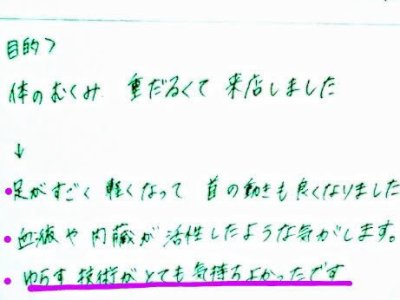 目的〉
体のむくみ 重だるくて 来店しました
↓
・足がすごく 軽くなって 首の動きも良くなりました
・血液や 内臓が 活性したような気がします。
・ゆらす 技術がとても気持ちよかったです